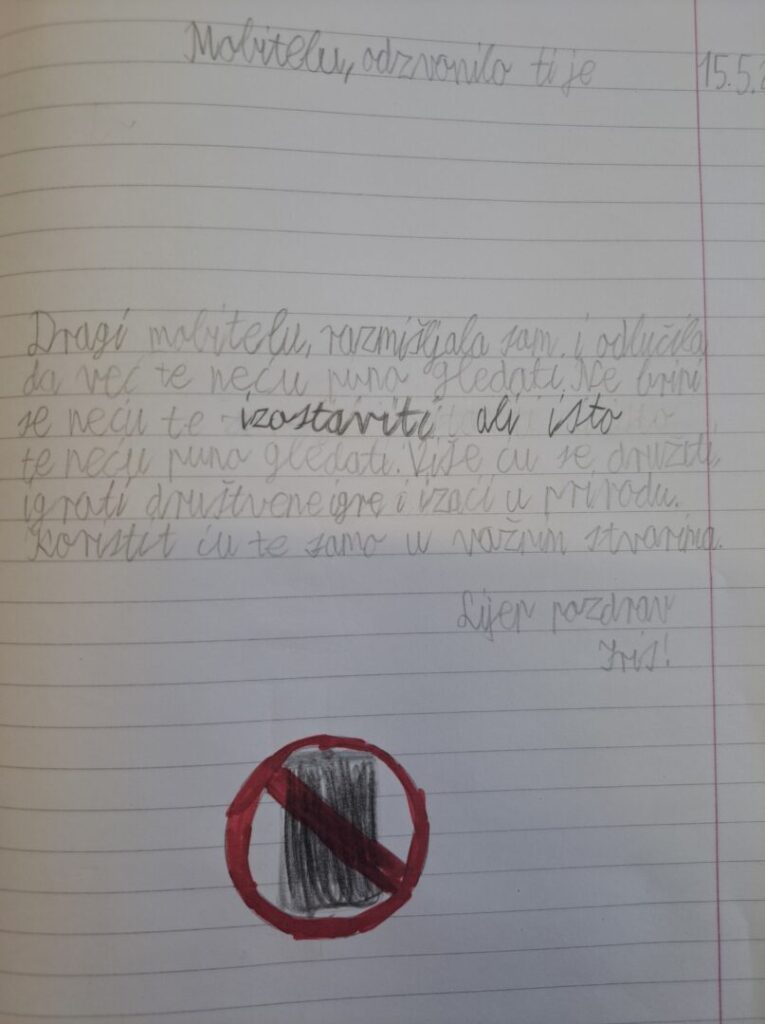 Mobitelu, odzvonilo ti je 15.5.
Dragi mobitelu, razmišljala sam i odlučila
da već te neću puno gledati. Ne brini
se neću te izostaviti ali isto
te neću puno gledati. Više ću se družiti,
igrati društvene igre i izaći u prirodu.
Koristit ću te samo u važnim stvarima.
Lijep pozdrav
Iris!